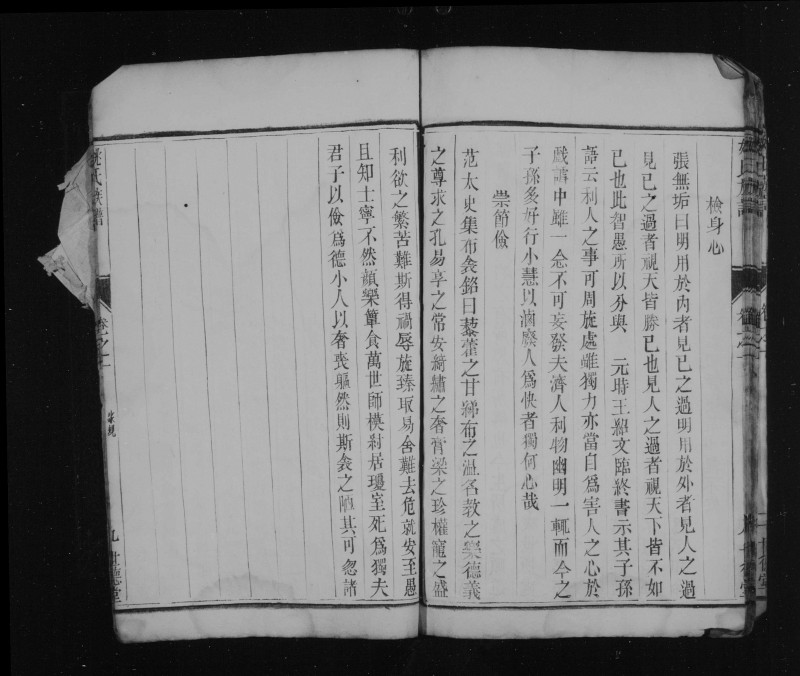 檢身心
張無垢曰明用於內者見已之過明用於外者見人之過
見已之過者視天皆勝已也見人之過者視天下皆不如
已也此智愚所以分與　元時王紹文臨終書示其子孫
語云利人之事可周旋處雖獨力亦當自為害人之心於
戲謔中雖一念不可妄發夫濟人利物幽明一輒而今之
子孫多好行小慧以滷
人為快者獨何心哉
崇節儉
范太史集布衾銘曰藜藿之甘綈布之溫名教之樂德義
之尊求之孔易享之常安綺繡之奢膏粱之珍權寵之盛
利欲之繁苦難斯得禍辱旋臻取易舍難去危就安至愚
且知士寧不然顏樂簞食萬世師模紂居瓊室死為獨夫
君子以儉為德小人以奢喪軀然則斯衾之陋其可忽諸
氏族譜
卷之一
家規
九
世德堂